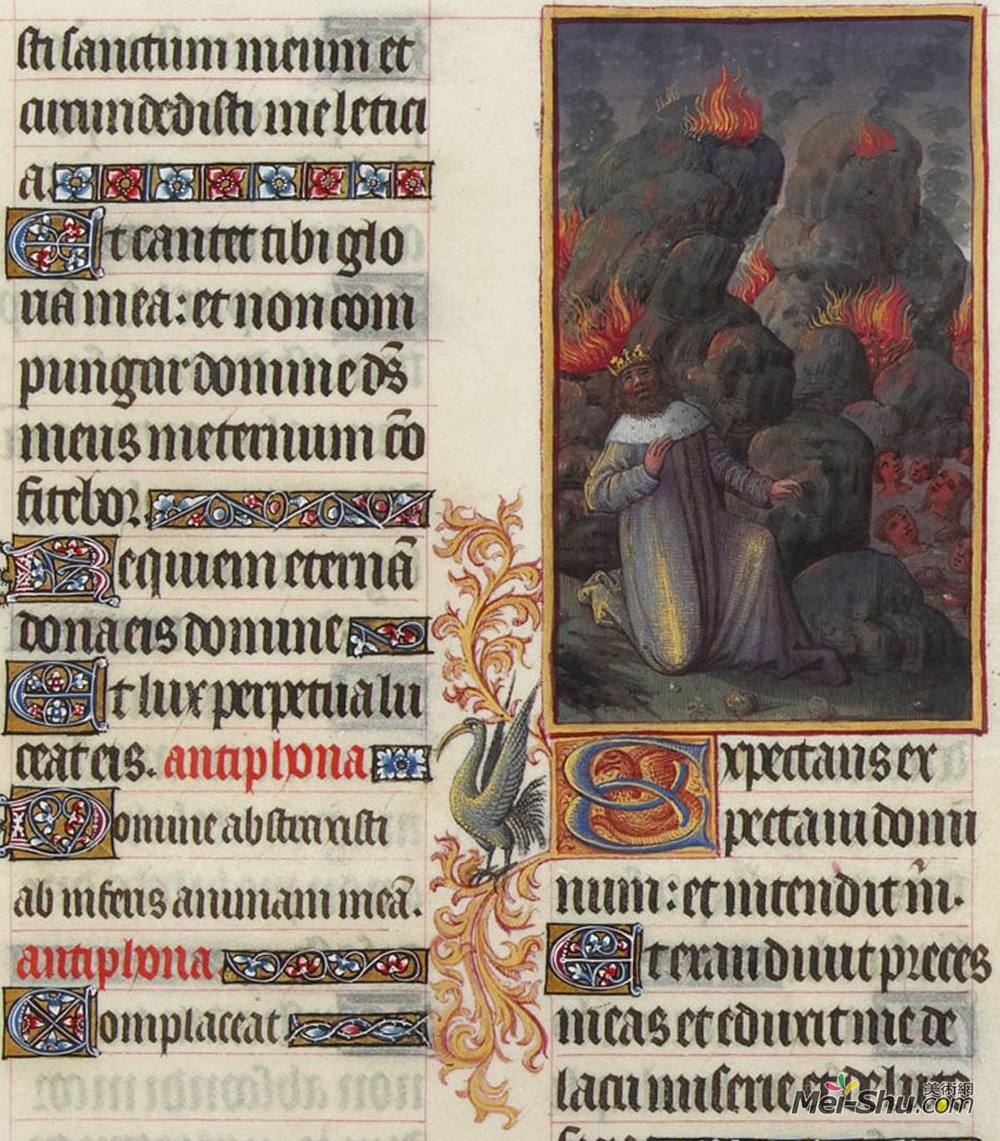 sti sanctum meum et
circundedisti me letici
a
Et cantet tibi glo
ria mea: et non com
pungar domine ds̄
meus in eternum c̄o
fitebor.
Requiem eternā
dona eis domine
Et lux perpetua lu
ceat eis. antiphona
Domine abstraxisti
ab inferis animam meā.
antiphona
Complaceat
Expectans ex
pectaui domi
num: et intendit m̄.
Et exaudiuit preces
meas et eduxit me de
lacu miserie et de luto
美術網
Mei-Shu.com